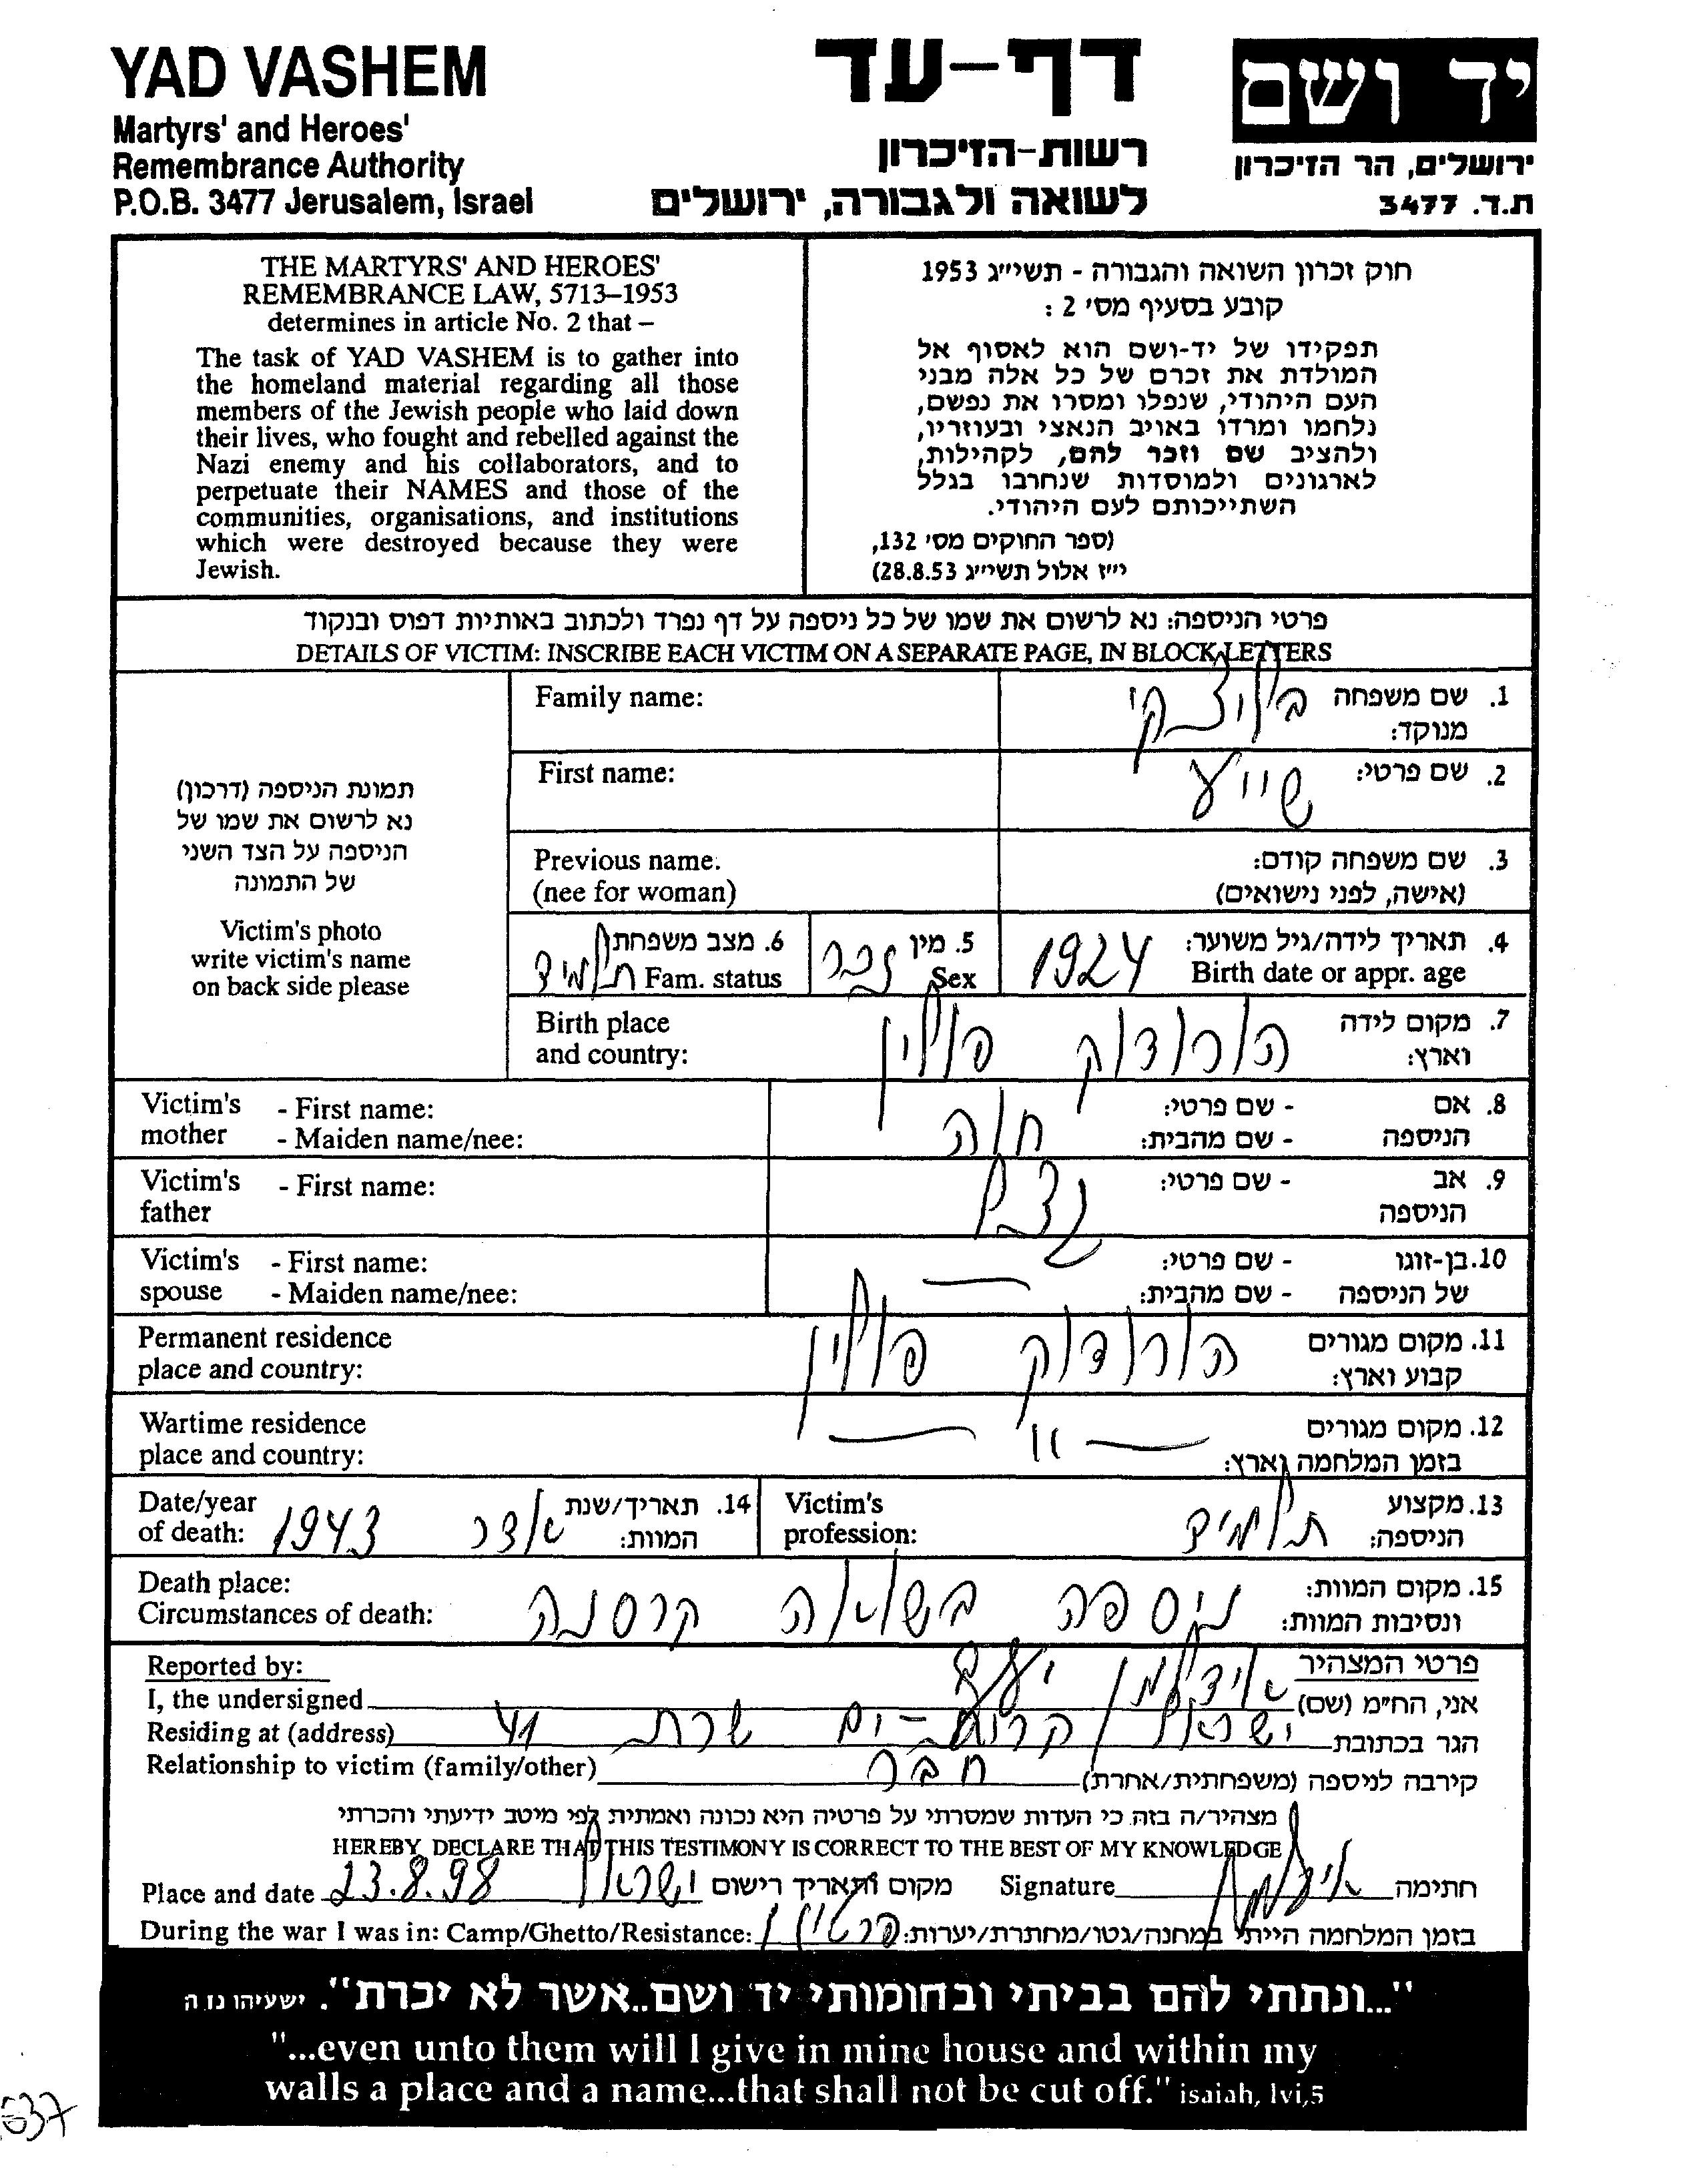 YAD VASHEM
Martyrs' and Heroes'
Remembrance Authority
P.O.B. 3477 Jerusalem, Israel
דף-עד
רשות-הזיכרון
לשואה ולגבורה, ירושלים
יד ושם
ירושלים, הר הזיכרון
ת.ד. 3477
THE MARTYRS' AND HEROES'
REMEMBRANCE LAW, 5713–1953
determines in article No. 2 that –
The task of YAD VASHEM is to gather into
the homeland material regarding all those
members of the Jewish people who laid down
their lives, who fought and rebelled against the
Nazi enemy and his collaborators, and to
perpetuate their NAMES and those of the
communities, organisations, and institutions
which were destroyed because they were
Jewish.
חוק זכרון השואה והגבורה - תשי״ג 1953
קובע בסעיף מס׳ 2 :
תפקידו של יד-ושם הוא לאסוף אל
המולדת את זכרם של כל אלה מבני
העם היהודי, שנפלו ומסרו את נפשם,
נלחמו ומרדו באויב הנאצי ובעוזריו,
ולהציב שם וזכר להם, לקהילות,
לארגונים ולמוסדות שנחרבו בגלל
השתייכותם לעם היהודי.
(ספר החוקים מס׳ 132,
י״ז אלול תשי״ג 28.8.53)
פרטי הניספה: נא לרשום את שמו של כל ניספה על דף נפרד ולכתוב באותיות דפוס ובנקוד
DETAILS OF VICTIM: INSCRIBE EACH VICTIM ON A SEPARATE PAGE, IN BLOCK LETTERS
תמונת הניספה (דרכון)
נא לרשום את שמו של
הניספה על הצד השני
של התמונה
Victim's photo
write victim's name
on back side please
Family name:
1. שם משפחה
מנוקד:
First name: שייע
2. שם פרטי:
Previous name.
(nee for woman)
3. שם משפחה קודם:
(אישה, לפני נישואים)
4. תאריך לידה/גיל משוער: 1924
Birth date or appr. age
5. מין זכר
Sex
6. מצב משפחתי תלמיד
Fam. status
7. מקום לידה
וארץ: הורודוק פולין
Birth place
and country:
Victim's mother - First name:
- Maiden name/nee:
8. אם הניספה - שם פרטי: חוה
- שם מהבית:
Victim's father - First name:
9. אב הניספה - שם פרטי:
Victim's spouse - First name:
- Maiden name/nee:
10. בן-זוגו של הניספה - שם פרטי: —
- שם מהבית:
Permanent residence
place and country:
11. מקום מגורים
קבוע וארץ: הורודוק פולין
Wartime residence
place and country:
12. מקום מגורים
בזמן המלחמה וארץ: — ״ —
13. מקצוע
הניספה: תלמיד
Victim's
profession:
14. תאריך/שנת
המוות: אדר 1943
Date/year
of death:
Death place:
Circumstances of death:
15. מקום המוות:
ונסיבות המוות: ניספה בשואה קרסנה
Reported by:
פרטי המצהיר
I, the undersigned
אני, הח״מ (שם)
Residing at (address)
הגר בכתובת ישראל קרית-ים שרת 41
Relationship to victim (family/other)
קירבה לניספה (משפחתית/אחרת) חבר
מצהיר/ה בזה כי העדות שמסרתי על פרטיה היא נכונה ואמתית לפי מיטב ידיעתי והכרתי
HEREBY DECLARE THAT THIS TESTIMONY IS CORRECT TO THE BEST OF MY KNOWLEDGE
Place and date 23.8.98 ישראל מקום ותאריך רישום Signature חתימה
During the war I was in: Camp/Ghetto/Resistance: בזמן המלחמה הייתי במחנה/גטו/מחתרת/יערות: פרטיזן
"...ונתתי להם בביתי ובחומותי יד ושם..אשר לא יכרת". ישעיהו נו ה
"...even unto them will I give in mine house and within my
walls a place and a name...that shall not be cut off." isaiah, lvi,5
537